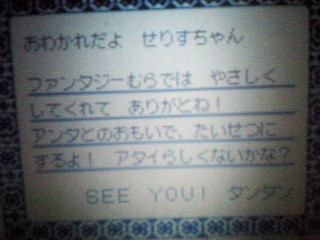 おわかれだよ　せりすちゃん
ファンタジーむらでは　やさしく
してくれて　ありがとね！
アンタとのおもいで、たいせつに
するよ！　アタイらしくないかな？
SEE YOU!　タンタン